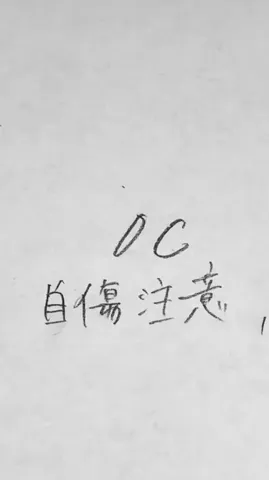 OC
自傷注意